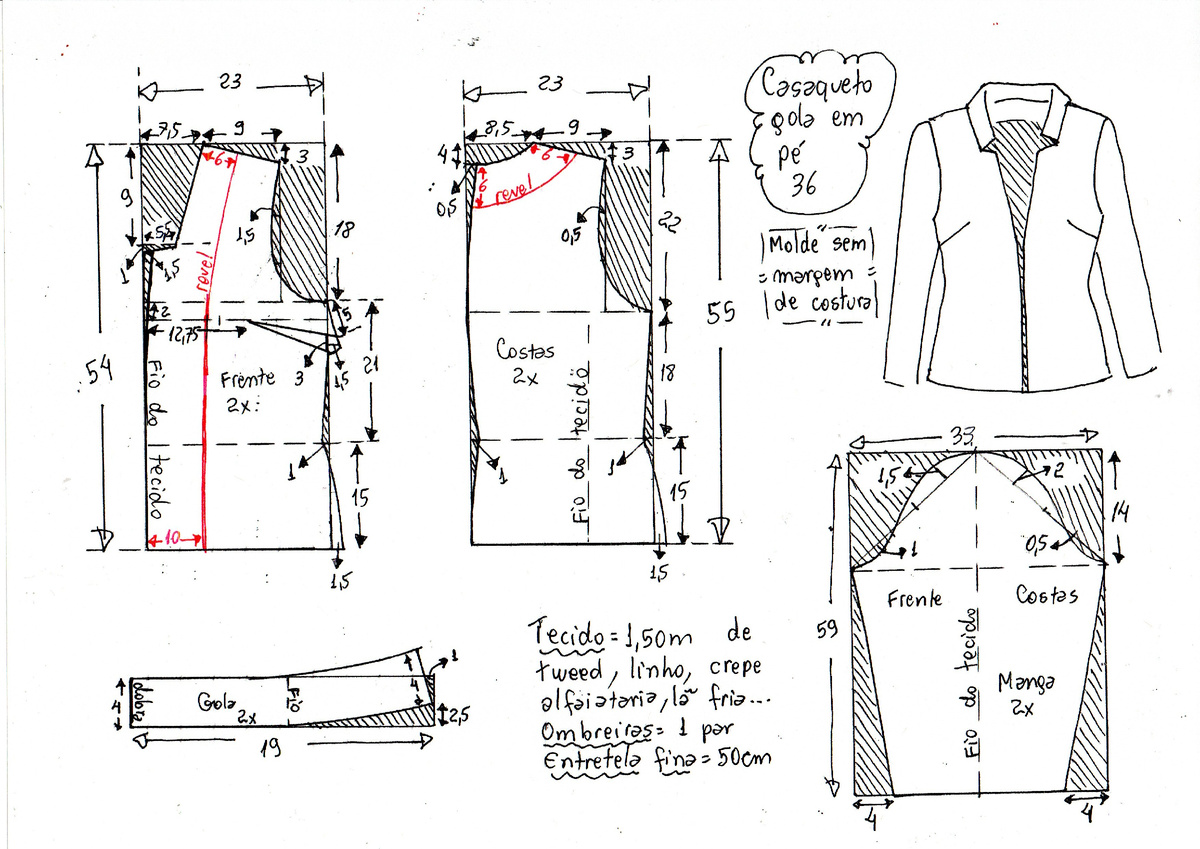 23
7,5
9
3
6
9
5,5
1,5
18
1
1,5
revel
2
12,75
5
54
Fio do tecido
Frente
2x
3
1,5
21
1
15
10
1,5
23
8,5
9
4
6
3
6
revel
0,5
0,5
22
55
Costas
2x
Fio do tecido
18
1
1
15
1,5
Casaqueto
gola em
pé
36
Molde sem
margem
de costura
33
1,5
2
14
1
0,5
Frente
Costas
59
Fio do tecido
Manga
2x
4
4
dobra
4
Gola
2x
Fio
4
1
2,5
19
Tecido = 1,50m de
tweed, linho, crepe
alfaiataria, lã fria...
Ombreiras = 1 par
Entretela fina = 50cm